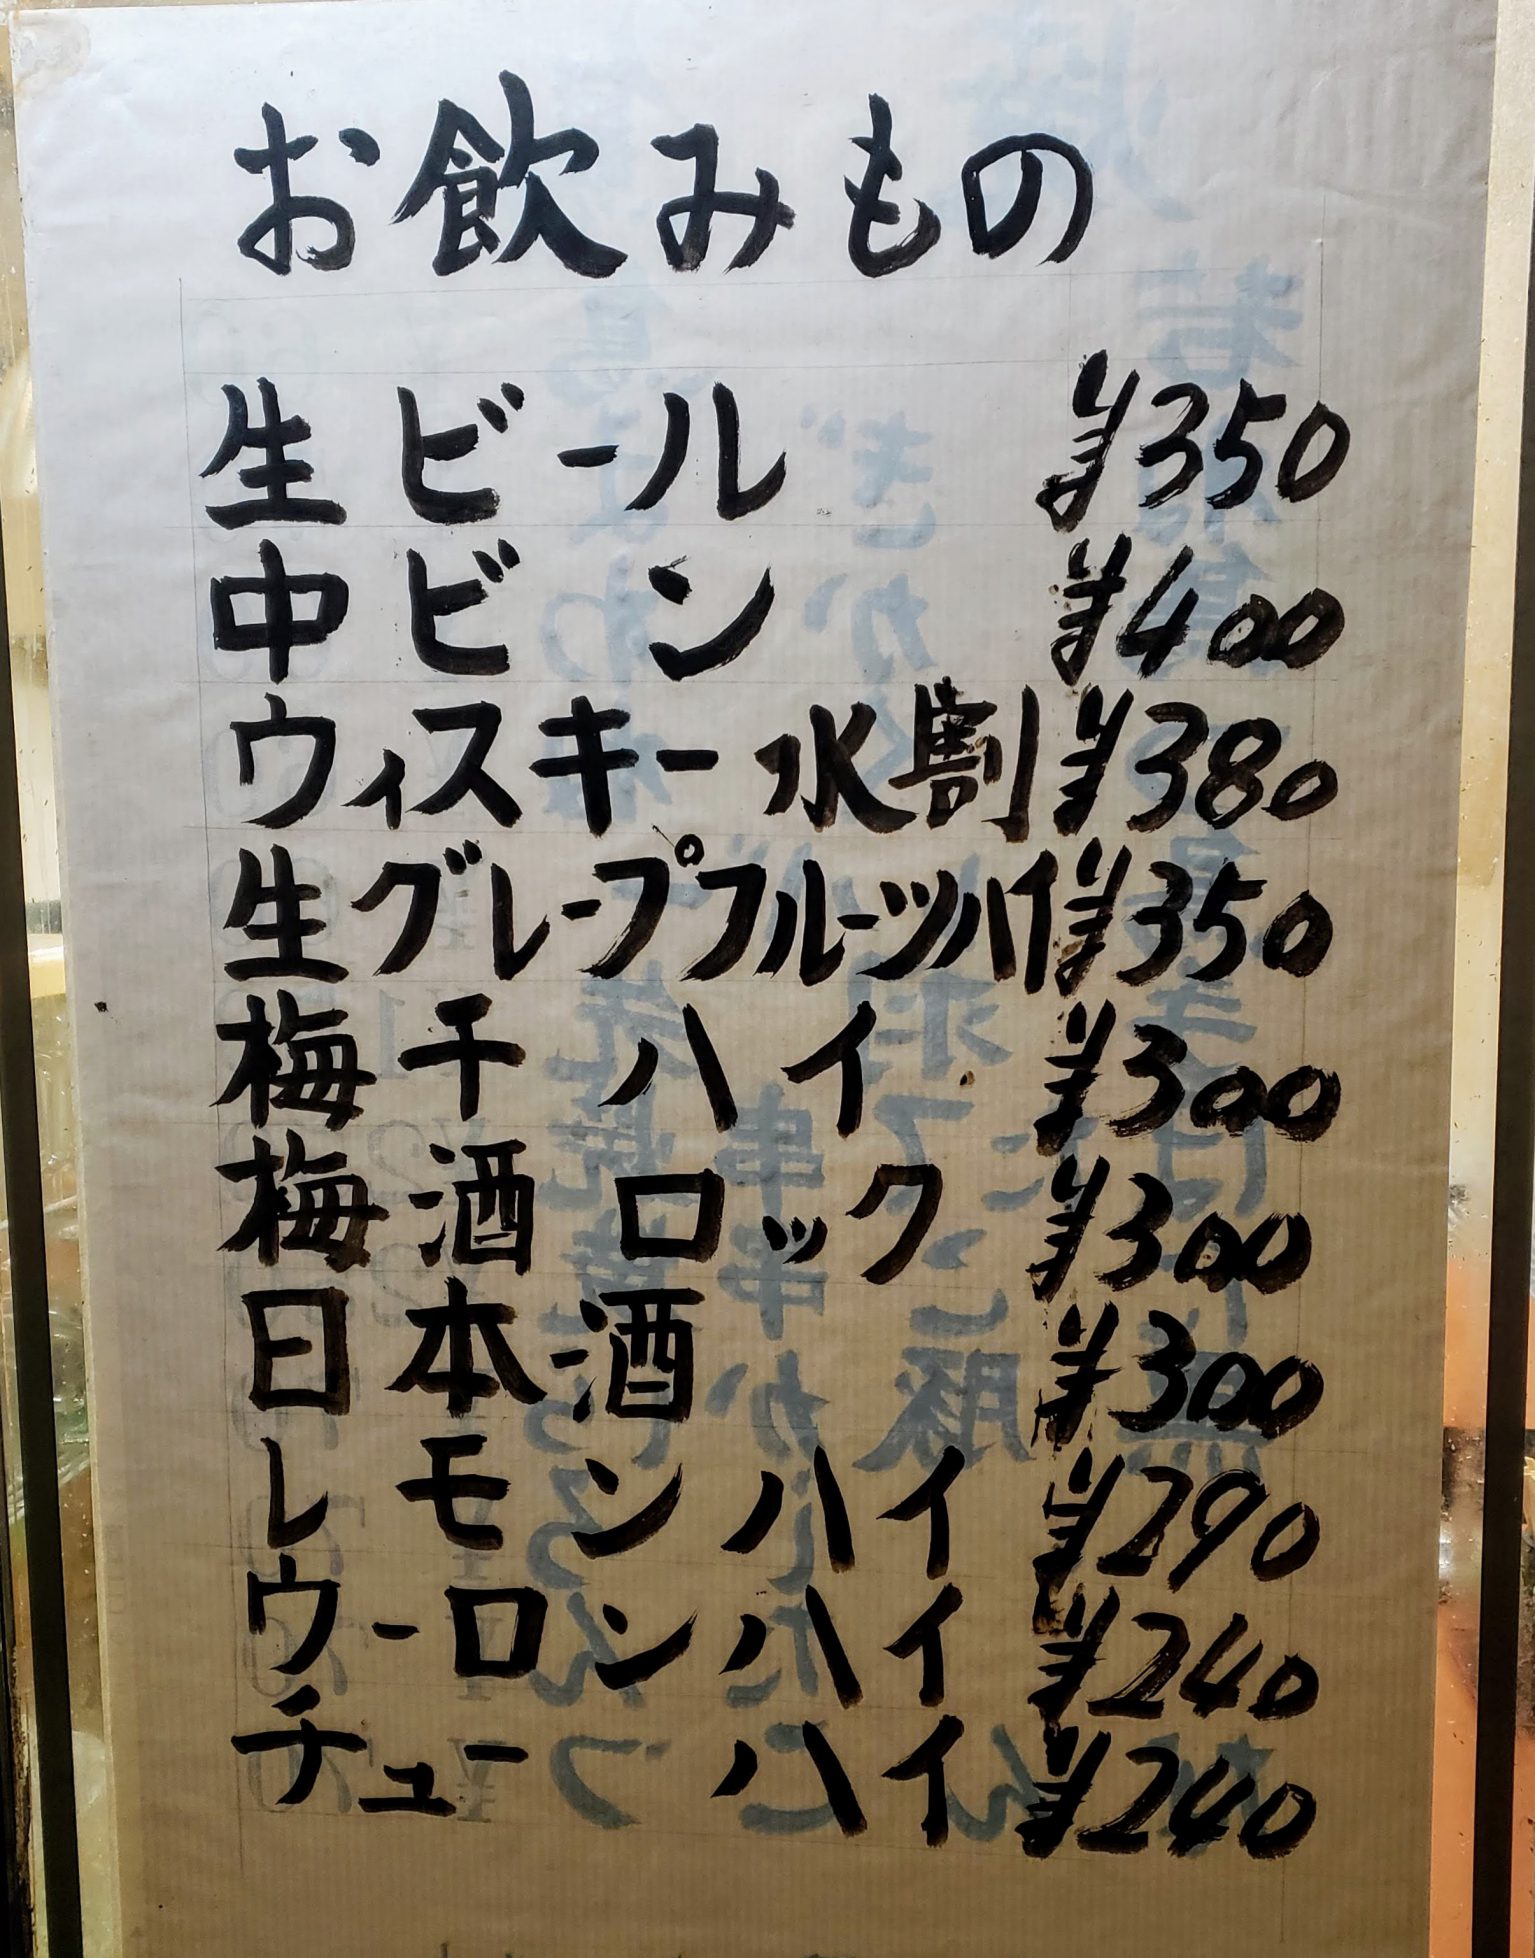 お飲みもの
生ビール ¥350
中ビン ¥400
ウィスキー水割 ¥380
生グレープフルーツハイ ¥350
梅干ハイ ¥300
梅酒ロック ¥300
日本酒 ¥300
レモンハイ ¥290
ウーロンハイ ¥240
チューハイ ¥240